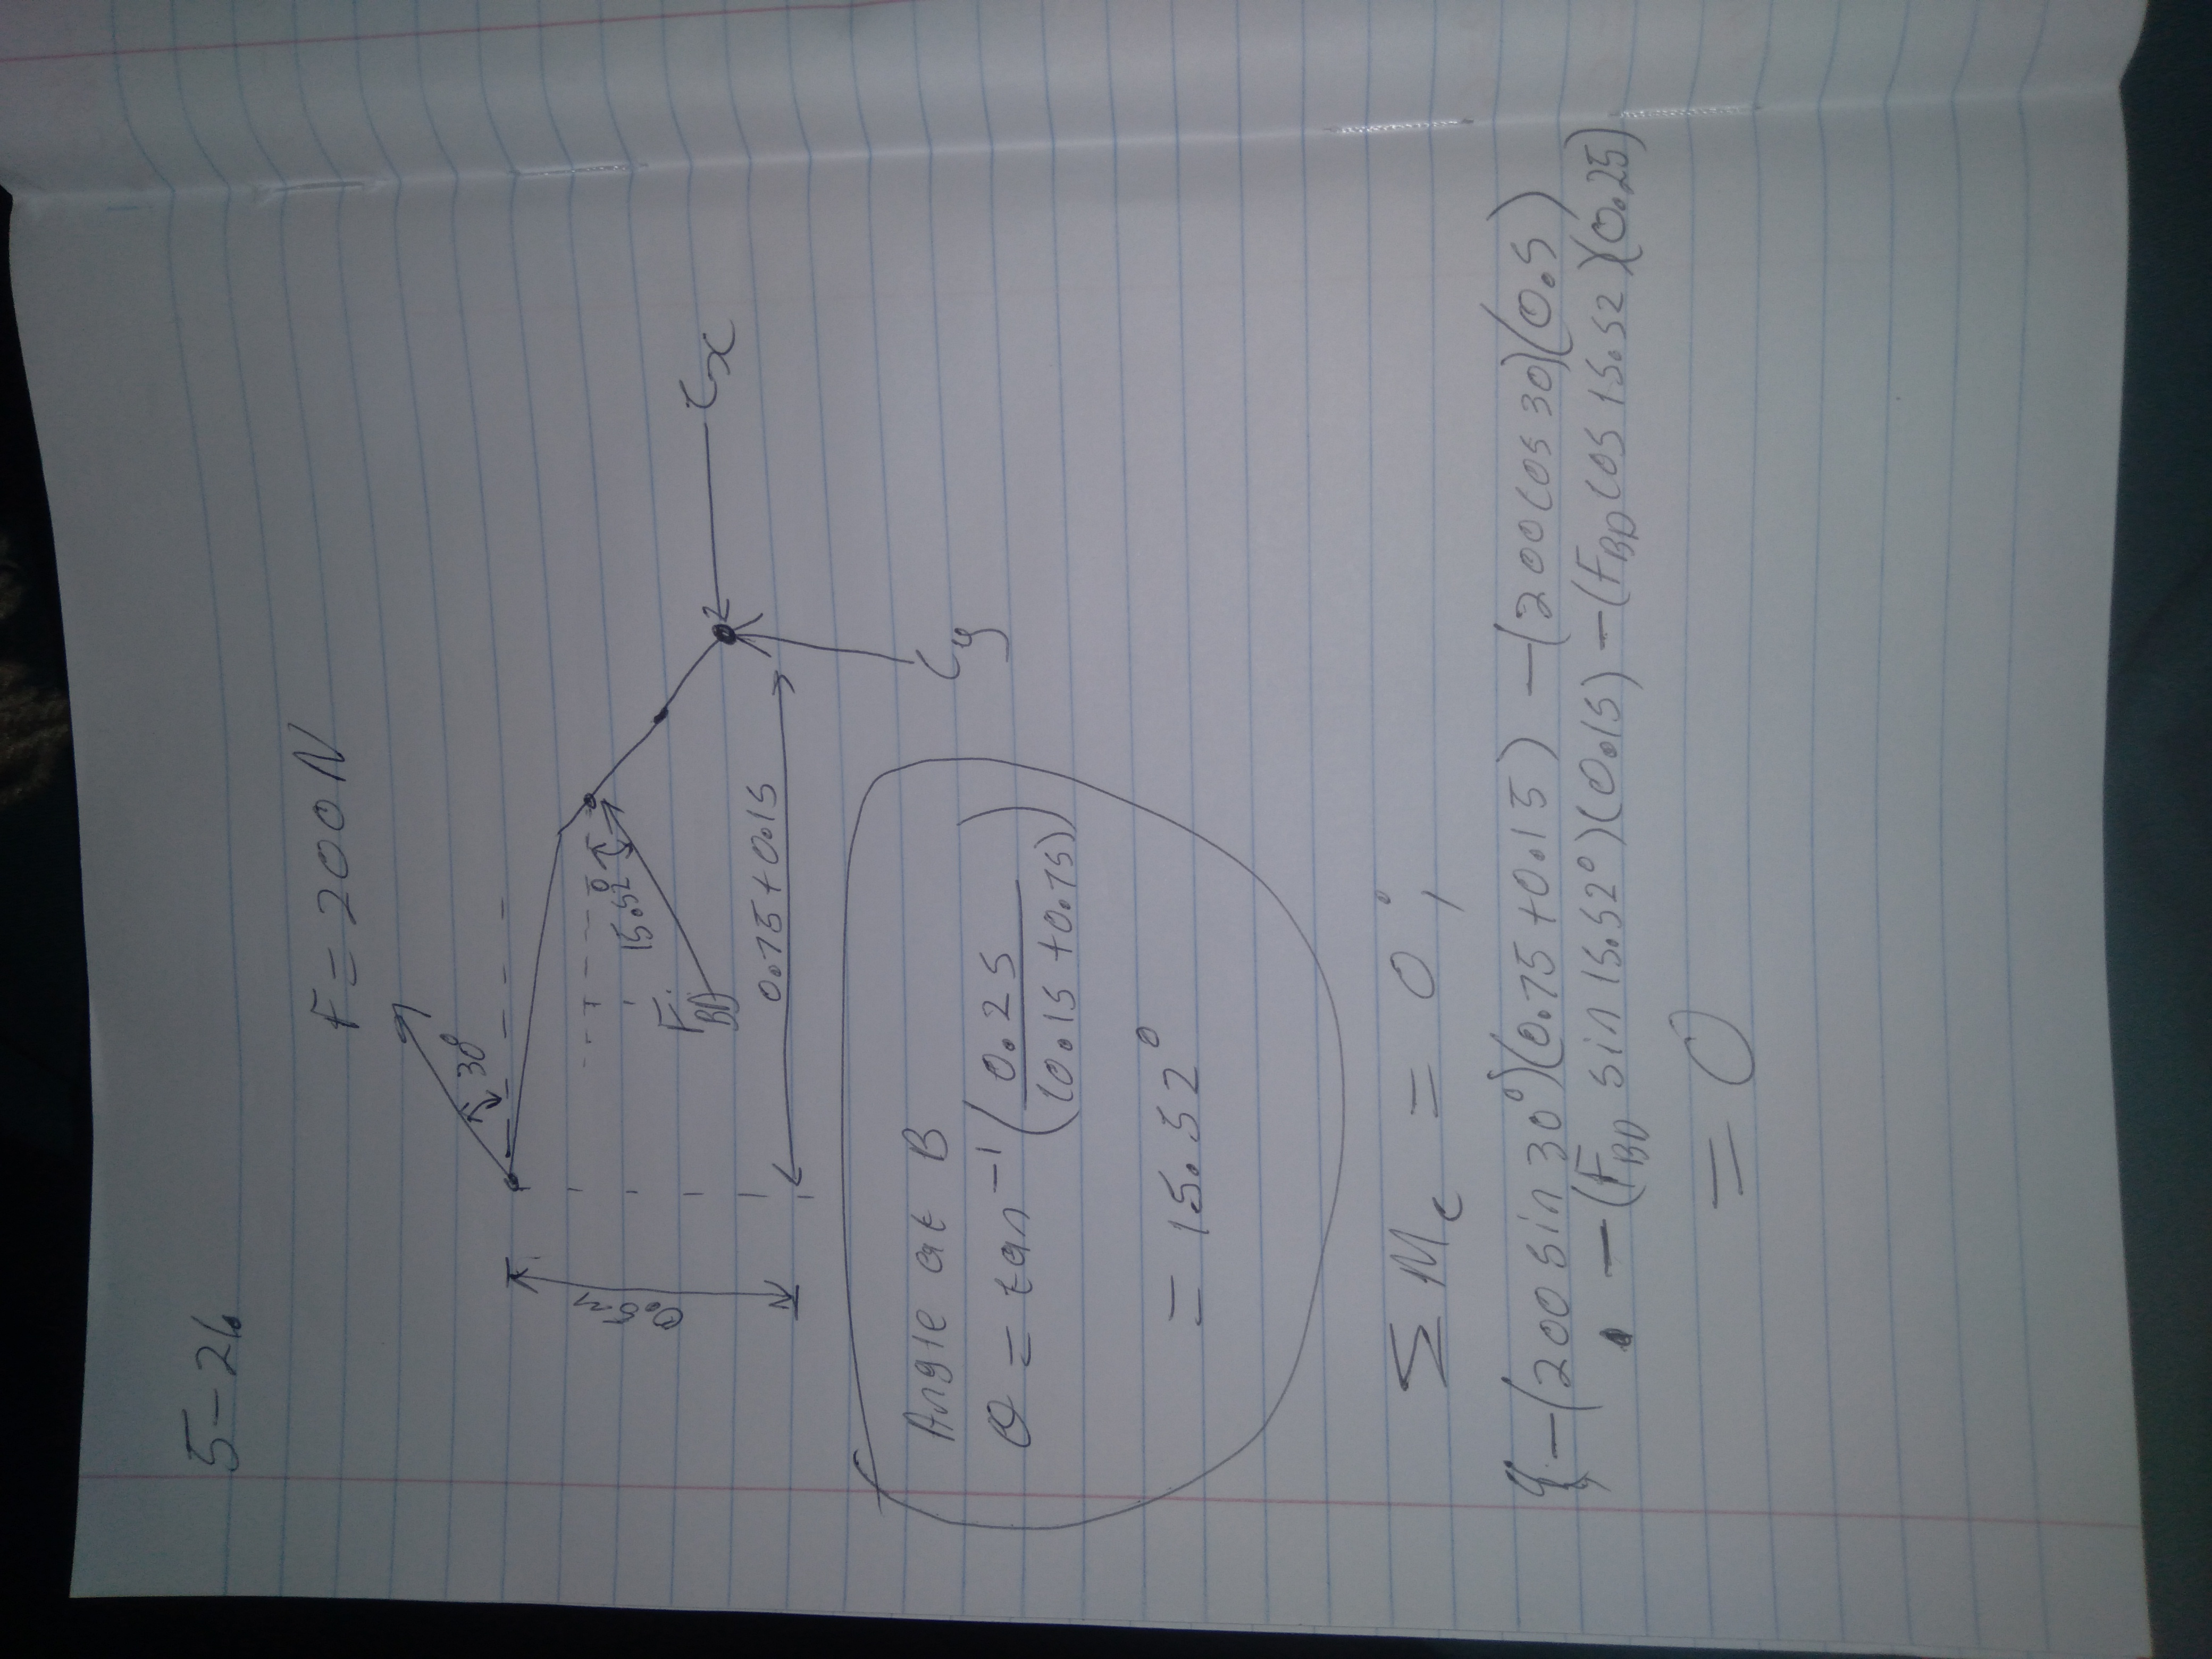 5-26.
F = 200N
30°
0.5m
15.52°
F
BD
Cx
0.75+0.15
Cy
Angle at B
θ = tan⁻¹(0.25/(0.15+0.75))
= 15.52°
ΣMc = 0;
-(200 sin 30°)(0.75+0.15) -(200cos 30)(0.5)
-(F_BD sin 15.52°)(0.15) -(F_BD cos 15.52)(0.25)
= 0